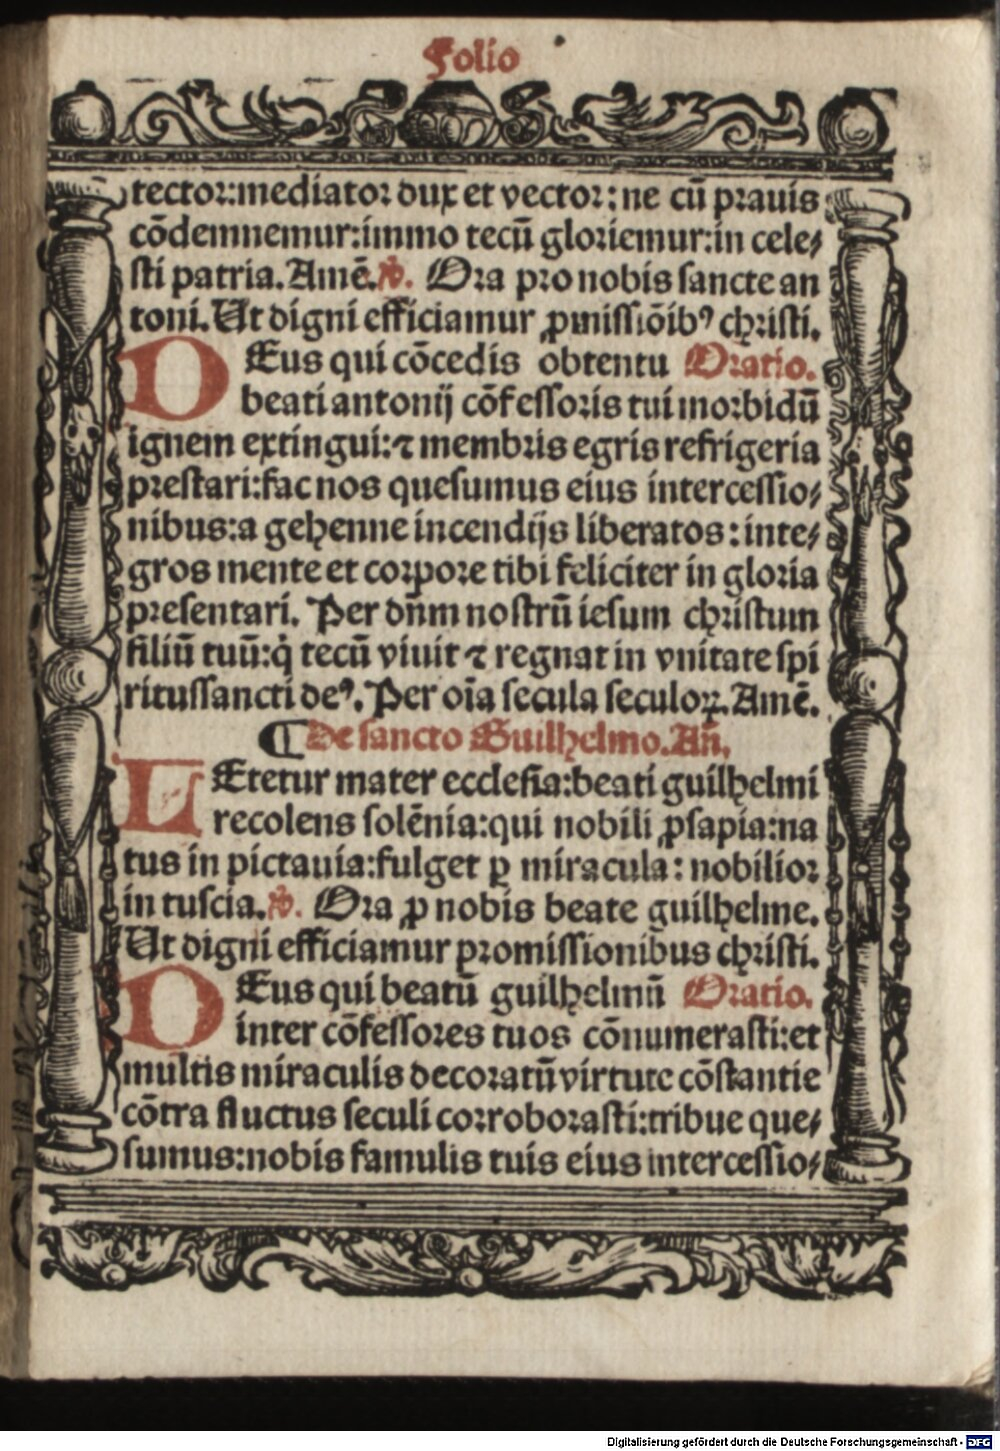 Folio
tector:mediator dux et vector: ne cū prauis
cōdemnemur:immo tecū gloriemur:in cele⸗
sti patria. Amē. ℣. Ora pro nobis sancte an
toni. Ut digni efficiamur ꝓmissiōibꝰ christi.
DEus qui cōcedis obtentu Oratio.
beati antonij cōfessoris tui morbidū
ignem extingui:⁊ membris egris refrigeria
prestari:fac nos quesumus eius intercessio⸗
nibus:a gehenne incendijs liberatos: inte⸗
gros mente et corpore tibi feliciter in gloria
presentari. Per dn̄m nostrū iesum christum
filiū tuū:q̇ tecū viuit ⁊ regnat in vnitate spi
ritussancti deꝰ. Per oīa secula seculoꝝ. Amē.
¶ De sancto Guilhelmo. An̄.
LEtetur mater ecclesia:beati guilhelmi
recolens solēnia:qui nobili ꝓsapia:na
tus in pictauia:fulget ꝑ miracula: nobilior
in tuscia. ℣. Ora ꝓ nobis beate guilhelme.
Ut digni efficiamur promissionibus christi.
DEus qui beatū guilhelmū Oratio.
inter cōfessores tuos cōnumerasti:et
multis miraculis decoratū virtute cōstantie
cōtra fluctus seculi corroborasti:tribue que⸗
sumus:nobis famulis tuis eius intercessio⸗
Digitalisierung gefördert durch die Deutsche Forschungsgemeinschaft - DFG